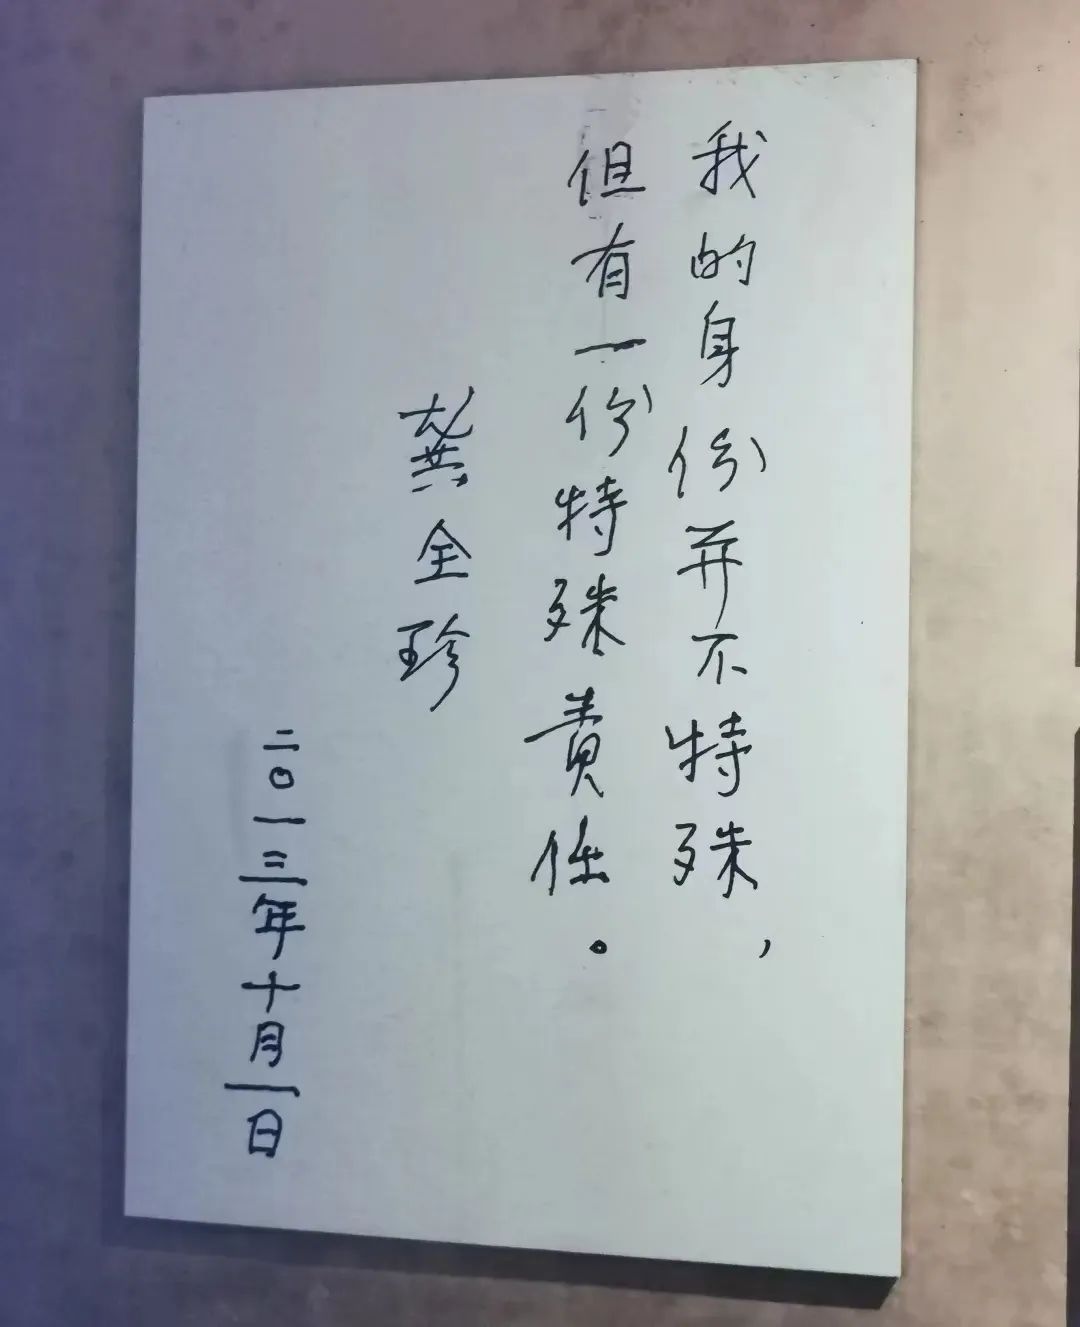 我的身份并不特殊，
但有一份特殊责任。
龚全珍
二〇一三年十月一日